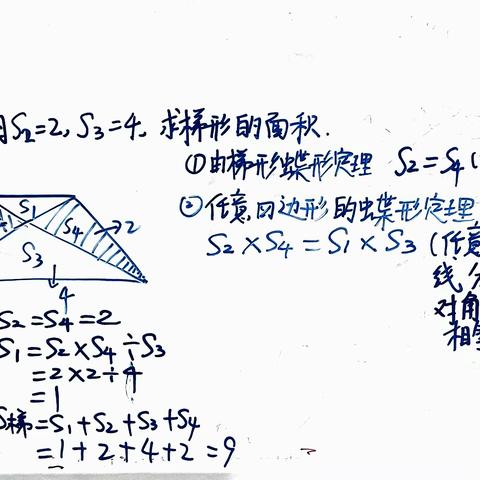 S₂=2, S₃=4, 求梯形的面积.
①由梯形蝶形定理 S₂=S₄(
②任意四边形的蝶形定理
S₂×S₄=S₁×S₃ (任意
线
对角
相
S₁
S₄ 2
S₃
4
S₂=S₄=2
S₁=S₂×S₄÷S₃
=2×2÷4
=1
S梯=S₁+S₂+S₃+S₄
=1+2+4+2=9